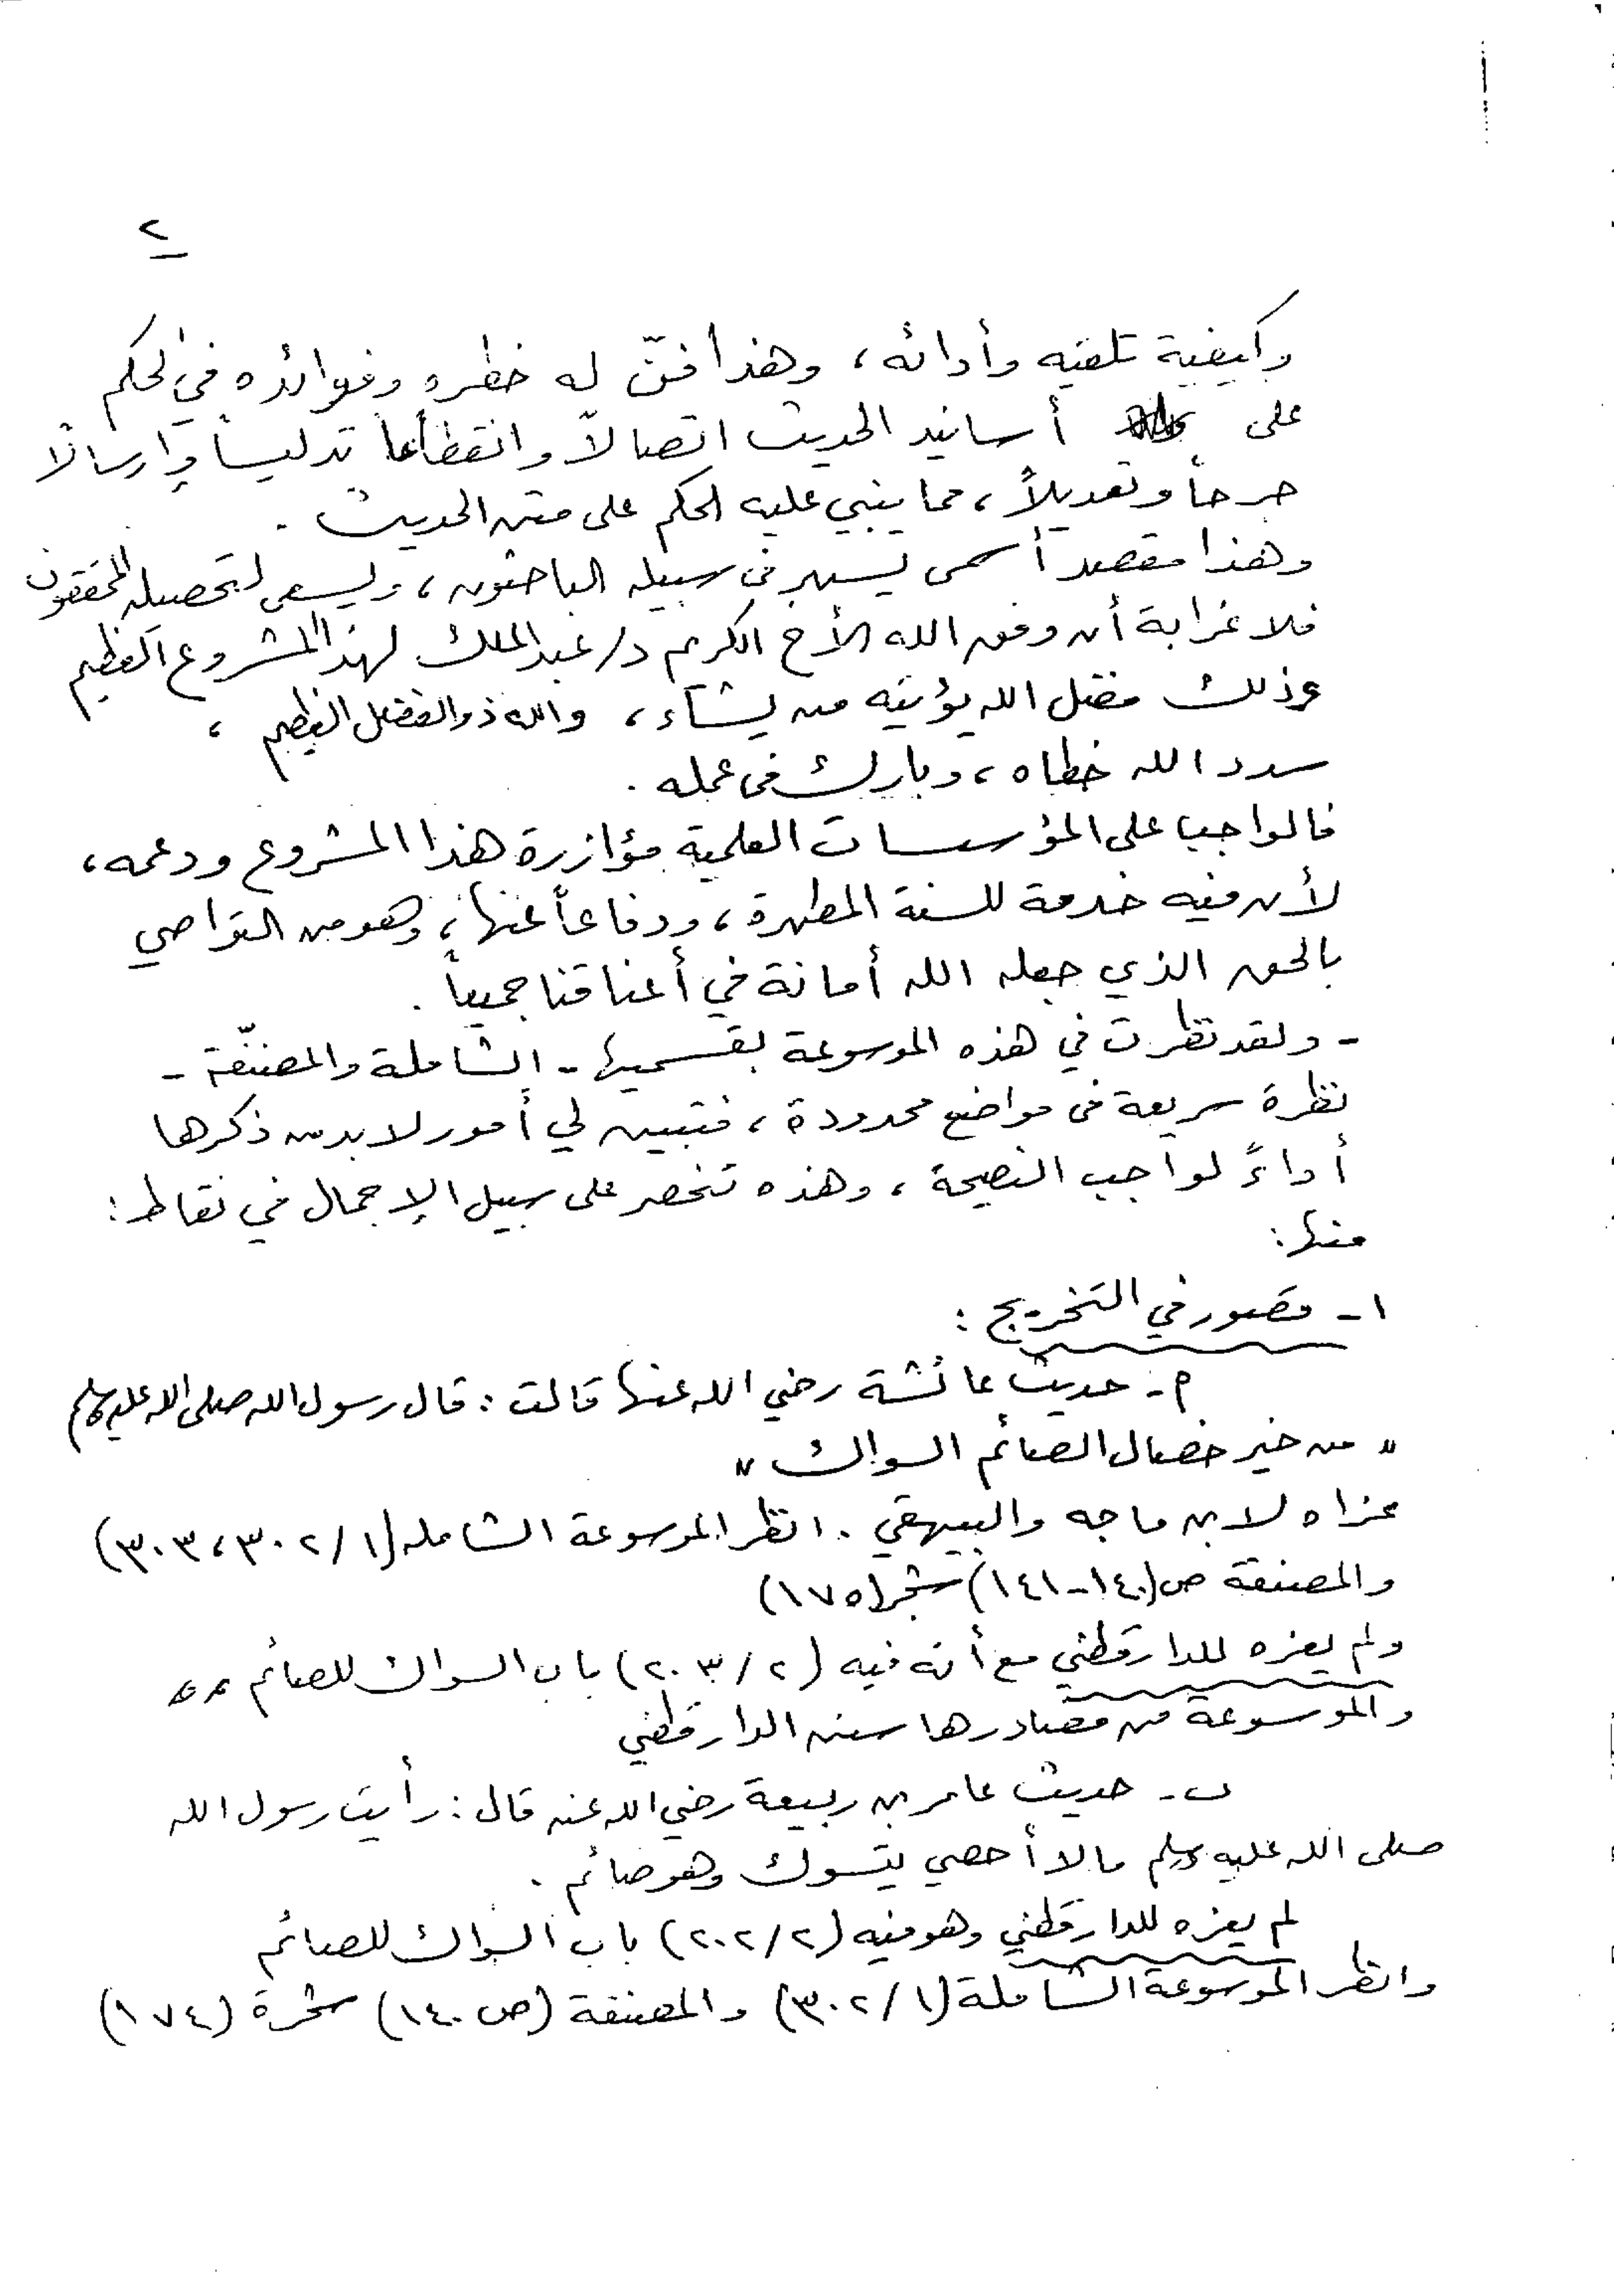 ٢
وكيفية تلقيه وأدائه ، وهذا فنّ له خطره وفوائده في الحكم
على أسانيد الحديث اتصالاً وانقطاعاً تدليساً وإرسالاً
جرحاً وتعديلاً ، مما ينبي عليه الحكم على متن الحديث .
وهذا مقصد أسمى يسهر في سبيله الباحثون ، ويسعى لتحصيله المحققون
فلا غرابة أن وفق الله الأخ الكريم د/ عبد الملك لهذا المشروع العظيم
وذلك فضل الله يؤتيه من يشاء ، والله ذو الفضل العظيم ،
سدد الله خطاه ، وبارك في عمله .
فالواجب على المؤسسات العلمية مؤازرة هذا المشروع ودعمه ،
لأن فيه خدمة للسنة المطهرة ، ودفاعاً عنها ، وهو من التواصي
بالحق الذي جعله الله أمانة في أعناقنا جميعاً .
- ولقد نظرت في هذه الموسوعة بقسميها - الشاملة والمصنّفة -
نظرة سريعة في مواضع محدودة ، فتبين لي أمور لابد من ذكرها
أداءً لواجب النصيحة ، وهذه تنحصر على سبيل الإجمال في نقاط :
منها :
١ - قصور في التخريج :
م - حديث عائشة رضي الله عنها قالت : قال رسول الله صلى الله عليه وسلم
" من خير خصال الصائم السواك "
عزاه لابن ماجه والبيهقي . انظر الموسوعة الشاملة (١/ ٣٠٢ ، ٣٠٣)
والمصنفة ص (١٤٠ - ١٤١) شجر (١٧٥)
ولم يعزه للدارقطني مع أنه فيه (٢/ ٢٠٣) باب السواك للصائم
والموسوعة من مصادرها سنن الدارقطني
ب - حديث عامر بن ربيعة رضي الله عنه قال : رأيت رسول الله
صلى الله عليه وسلم مالا أحصي يتسوك وهو صائم .
لم يعزه للدارقطني وهو فيه (٢/ ٢٠٢) باب السواك للصائم
وانظر الموسوعة الشاملة (١/ ٣٠٢) والمصنفة (ص ١٤٠) شجرة (١٧٤)